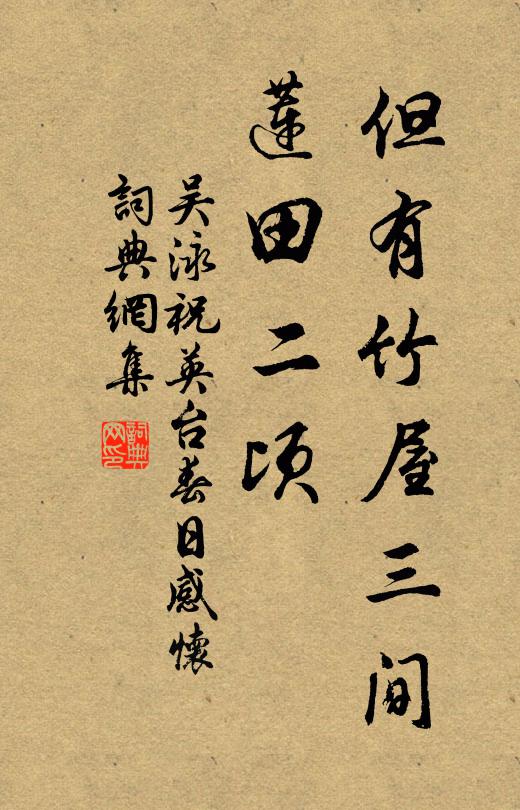 但有竹屋三间
莲田二顷
吴泳祝英台春日感懷
詞典網集
詞典网印